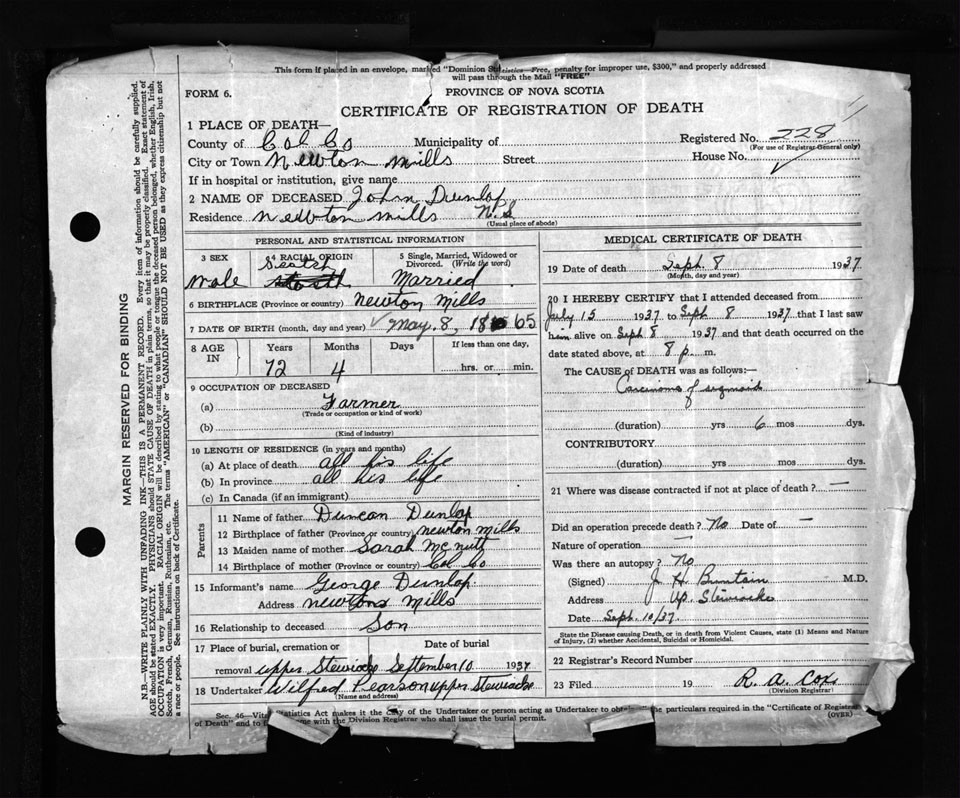 This form if placed in an envelope, marked "Dominion Statistics—Free, penalty for improper use, $300," and properly addressed
will pass through the Mail "FREE"
FORM 6.
PROVINCE OF NOVA SCOTIA
CERTIFICATE OF REGISTRATION OF DEATH
1 PLACE OF DEATH—
County of Col Co Municipality of
Registered No. 228
(For use of Registrar-General only)
City or Town Newton mills Street House No.
If in hospital or institution, give name
2 NAME OF DECEASED John Dunlap
Residence newton mills N.S
(Usual place of abode)
PERSONAL AND STATISTICAL INFORMATION
3 SEX 4 RACIAL ORIGIN 5 Single, Married, Widowed or Divorced. (Write the word)
male Scotch Married
6 BIRTHPLACE (Province or country) newton mills
7 DATE OF BIRTH (month, day and year) May. 8, 1865
8 AGE IN Years Months Days If less than one day,
72 4 hrs. or min.
9 OCCUPATION OF DECEASED
(a) Farmer
(Trade or occupation or kind of work)
(b)
(Kind of industry)
10 LENGTH OF RESIDENCE (in years and months)
(a) At place of death all his life
(b) In province all his life
(c) In Canada (if an immigrant)
Parents
11 Name of father Duncan Dunlap
12 Birthplace of father (Province or country) newton mills
13 Maiden name of mother Sarah McNutt
14 Birthplace of mother (Province or country) Col Co
15 Informant's name George Dunlap
Address newtons mills
16 Relationship to deceased Son
17 Place of burial, cremation or removal Date of burial
upper Stewiacke September 10 1937
18 Undertaker Wilfred Pearson upper Stewiacke
(Name and address)
MEDICAL CERTIFICATE OF DEATH
19 Date of death Sept. 8 1937
(Month, day and year)
20 I HEREBY CERTIFY that I attended deceased from
July 15 1937 to Sept 8 1937 that I last saw
him alive on Sept 8 1937 and that death occurred on the
date stated above, at 8 p. m.
The CAUSE of DEATH was as follows:—
Carcinoma of sigmoid
(duration) yrs 6 mos dys.
CONTRIBUTORY
(duration) yrs mos dys.
21 Where was disease contracted if not at place of death? —
Did an operation precede death? No Date of —
Nature of operation —
Was there an autopsy? No
(Signed) J. H. Bruntain M.D.
Address Up. Stewiacke
Date Sept. 10/37.
State the Disease causing Death, or in death from Violent Causes, state (1) Means and Nature
of Injury, (2) whether Accidental, Suicidal or Homicidal.
22 Registrar's Record Number
23 Filed 19 R. A. Cox
(Division Registrar)
Sec. 46—Vital Statistics Act makes it the duty of the Undertaker or person acting as Undertaker to obtain the particulars required in the "Certificate of Registration
of Death" and to file same with the Division Registrar who shall issue the burial permit.
(OVER)
MARGIN RESERVED FOR BINDING
N.B.—WRITE PLAINLY WITH UNFADING INK—THIS IS A PERMANENT RECORD. Every item of information should be carefully supplied.
AGE should be stated EXACTLY. PHYSICIANS should STATE CAUSE OF DEATH in plain terms, so that it may be properly classified. Exact statement of
OCCUPATION is very important. RACIAL ORIGIN will be described by stating to what people or tongue the deceased person belonged, whether English, Irish,
Scotch, French, German, Russian, Ruthenian, etc. The terms "AMERICAN" or "CANADIAN" SHOULD NOT BE USED as they express citizenship but not
a race or people. See instructions on back of Certificate.